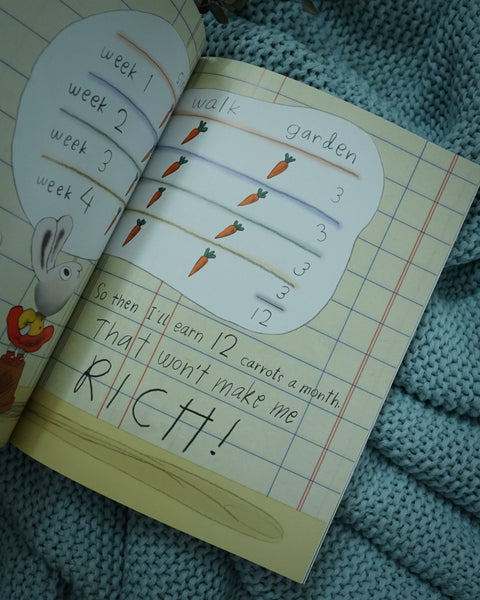 week 1
week 2
week 3
week 4
walk garden
3
3
3
3
12
So then I'll earn 12 carrots a month.
That won't make me
RICH!